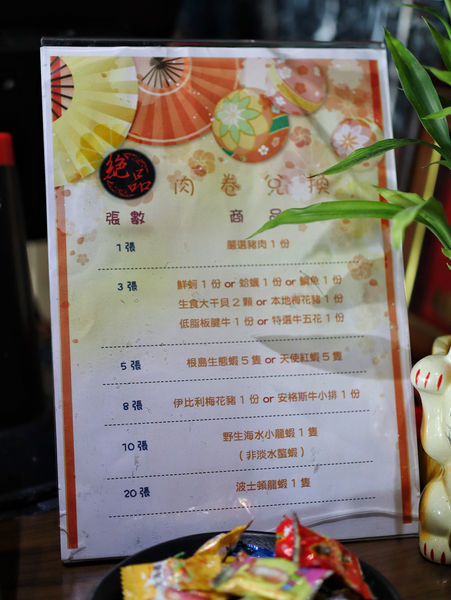 絕品
肉卷兌換
張數 商品
1張 嚴選豬肉1份
3張 鮮蚵1份or蛤蠣1份or鯛魚1份
生食大干貝2顆or本地梅花豬1份
低脂板腱牛1份or特選牛五花1份
5張 根島生態蝦5隻or天使紅蝦5隻
8張 伊比利梅花豬1份or安格斯牛小排1份
10張 野生海水小龍蝦1隻
(非淡水螯蝦)
20張 波士頓龍蝦1隻